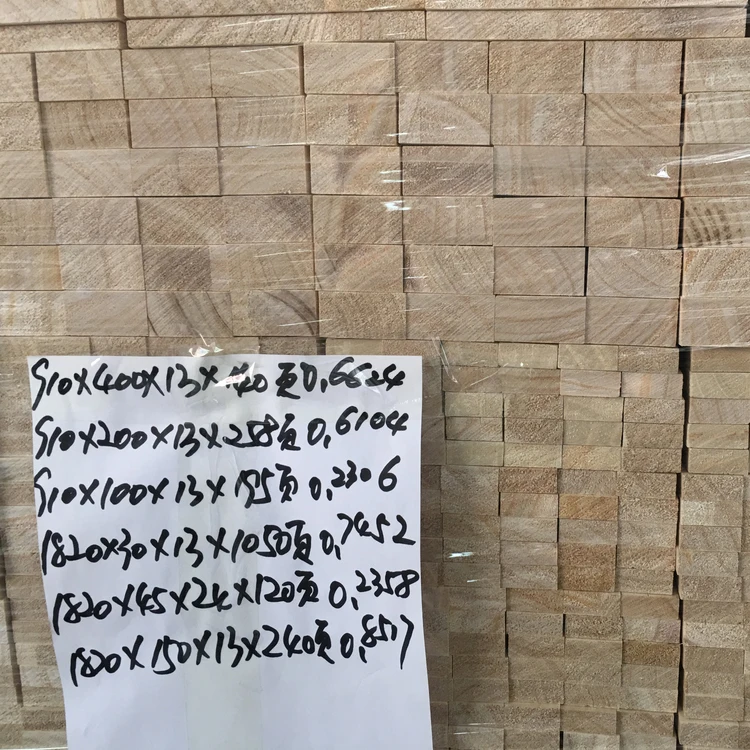 910×400×13×140页0.6624
910×200×13×258页0.6104
910×100×13×195页0.2306
1820×30×13×1050页0.7452
1820×45×24×120页0.2358
1820×150×13×240页0.8517